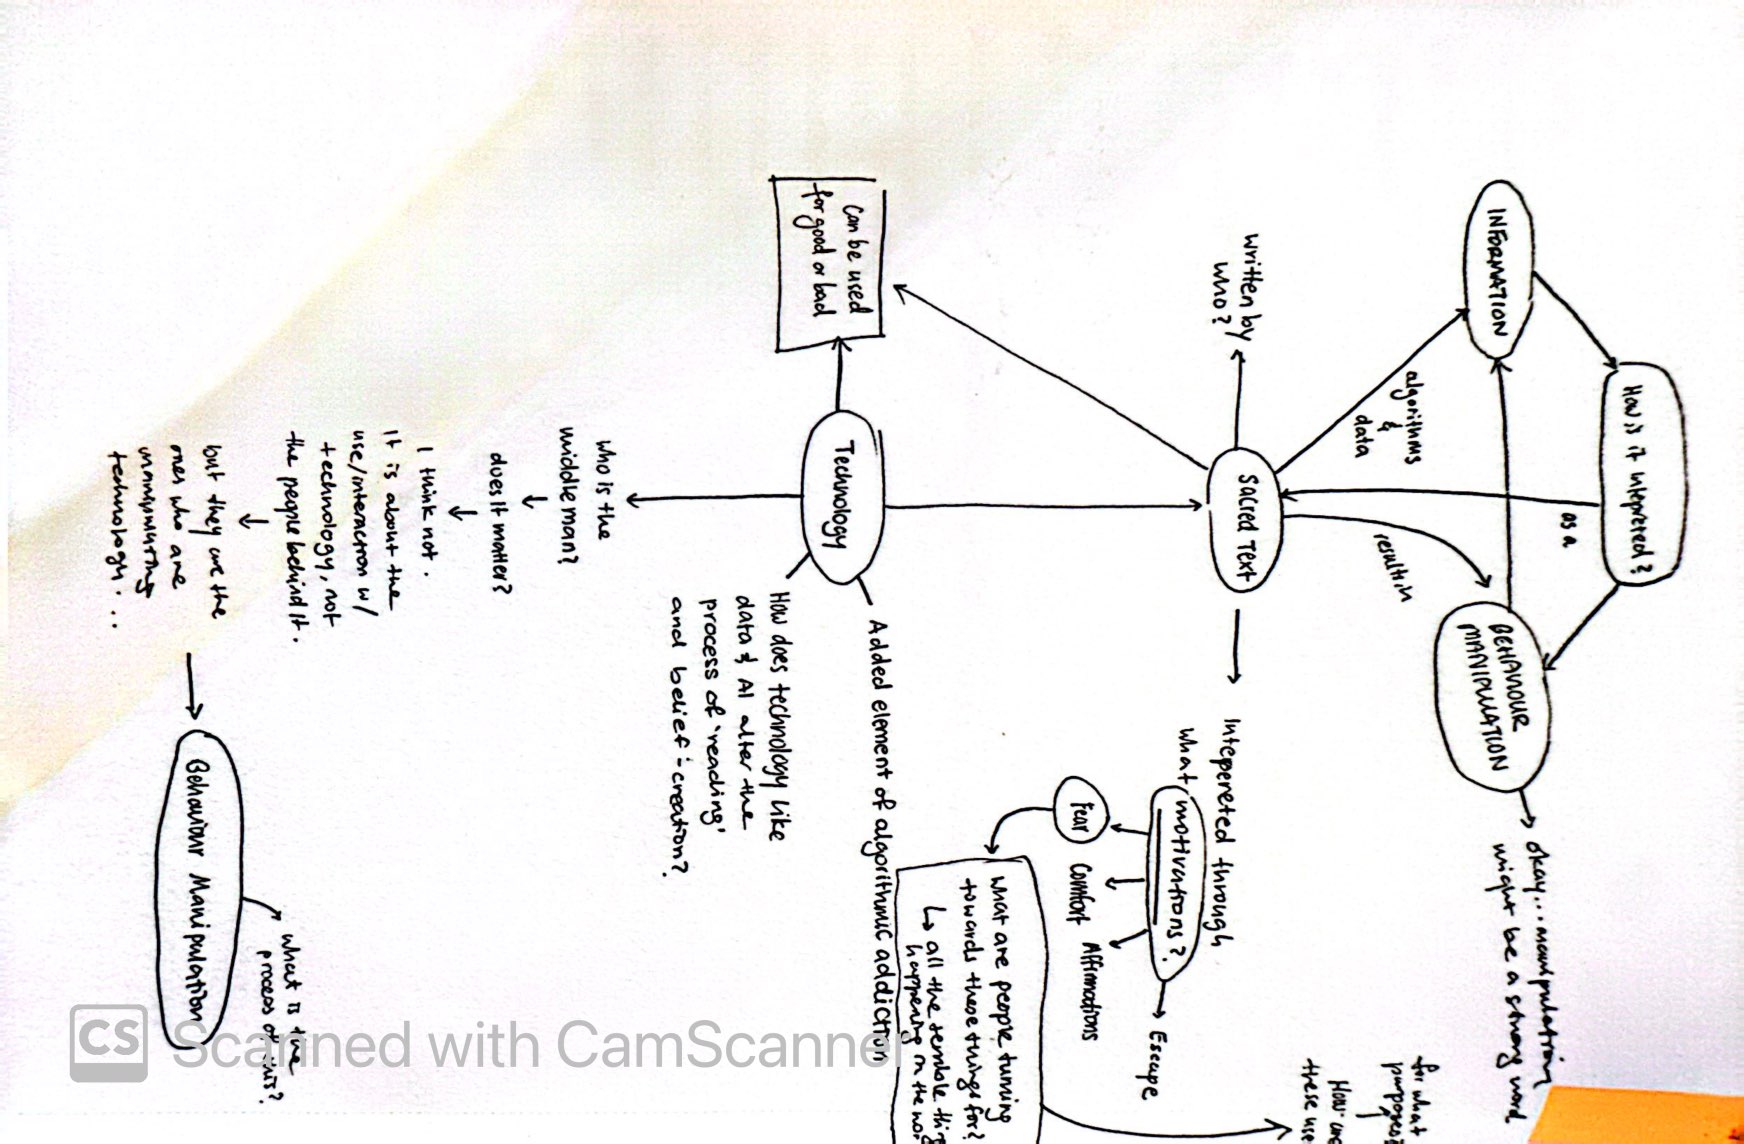 How is it intepreted?
as a
INFORMATION
BEHAVIOUR
MANIPULATION
okay... manipulation
might be a strong word
algorithms
&
data
results in
for what
purposes?
How are
these use
written by
who?
Sacred Text
Intepereted through
what motivations?
Escape
Fear
Comfort
Affirmations
what are people turning
towards these things for?
↳ all the terrible thing
happening in the wor
Can be used
for good or bad
Technology
Added element of algorithmic addiction
How does technology like
data & AI alter the
process of 'reading'
and belief-creation?
who is the
middle man?
does it matter?
I think not.
It is about the
use/interaction w/
technology, not
the people behind it.
but they are the
ones who are
manipulating
technology...
what is the
process of this?
Behaviour Manipulation
CS Scanned with CamScanner